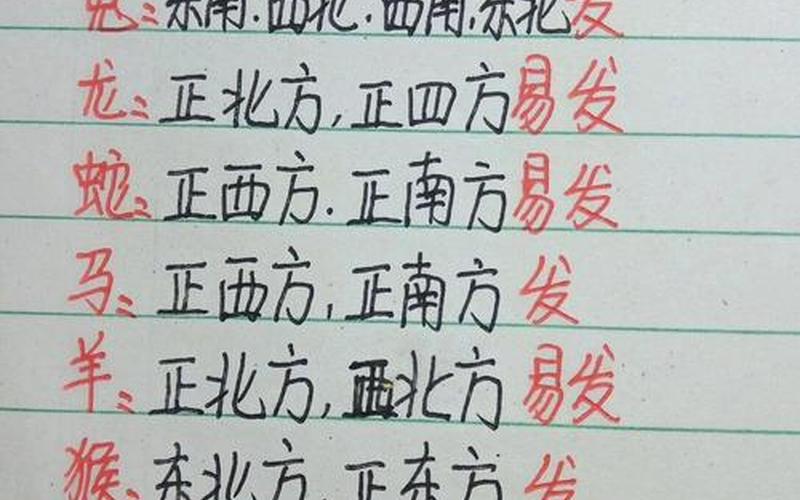 兔:东南.西北.西南.东北发
龙:正北方,正四方易发
蛇:正西方.正南方易发
马:正西方,正南方发
羊:正北方,西北方易发
猴:东北方,正东方发